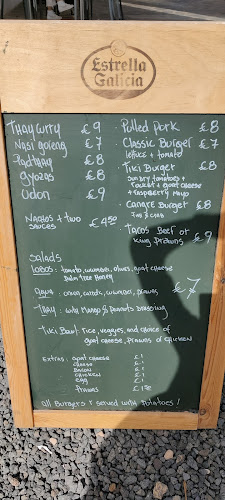 Estrella
Galicia
Thay curry £9
Nasi goreng £7
Padthay £8
Gyozas £8
Udon £9
Nachos + two
sauces £4.50
Pulled Pork £8
Classic Burger £7
lettuce + tomato
Tiki Burger £8
sundry tomatoes +
+ goat cheese
+ raspberry mayo
Canare Burger £8
Tacos Beef or
king prawns £9
Salads
Lobos: tomato, cucumber, olives, goat cheese
Palm tree honey
£7
Thay: with Mango & Peanuts dressing
Tiki Bowl: Rice, veggies, and choice of
goat cheese, prawns or chicken
Extras: goat cheese £1
cheese £1
Bacon £1
chicken £1
egg £1
Prawns £1.50
All Burgers r served with Potatoes!